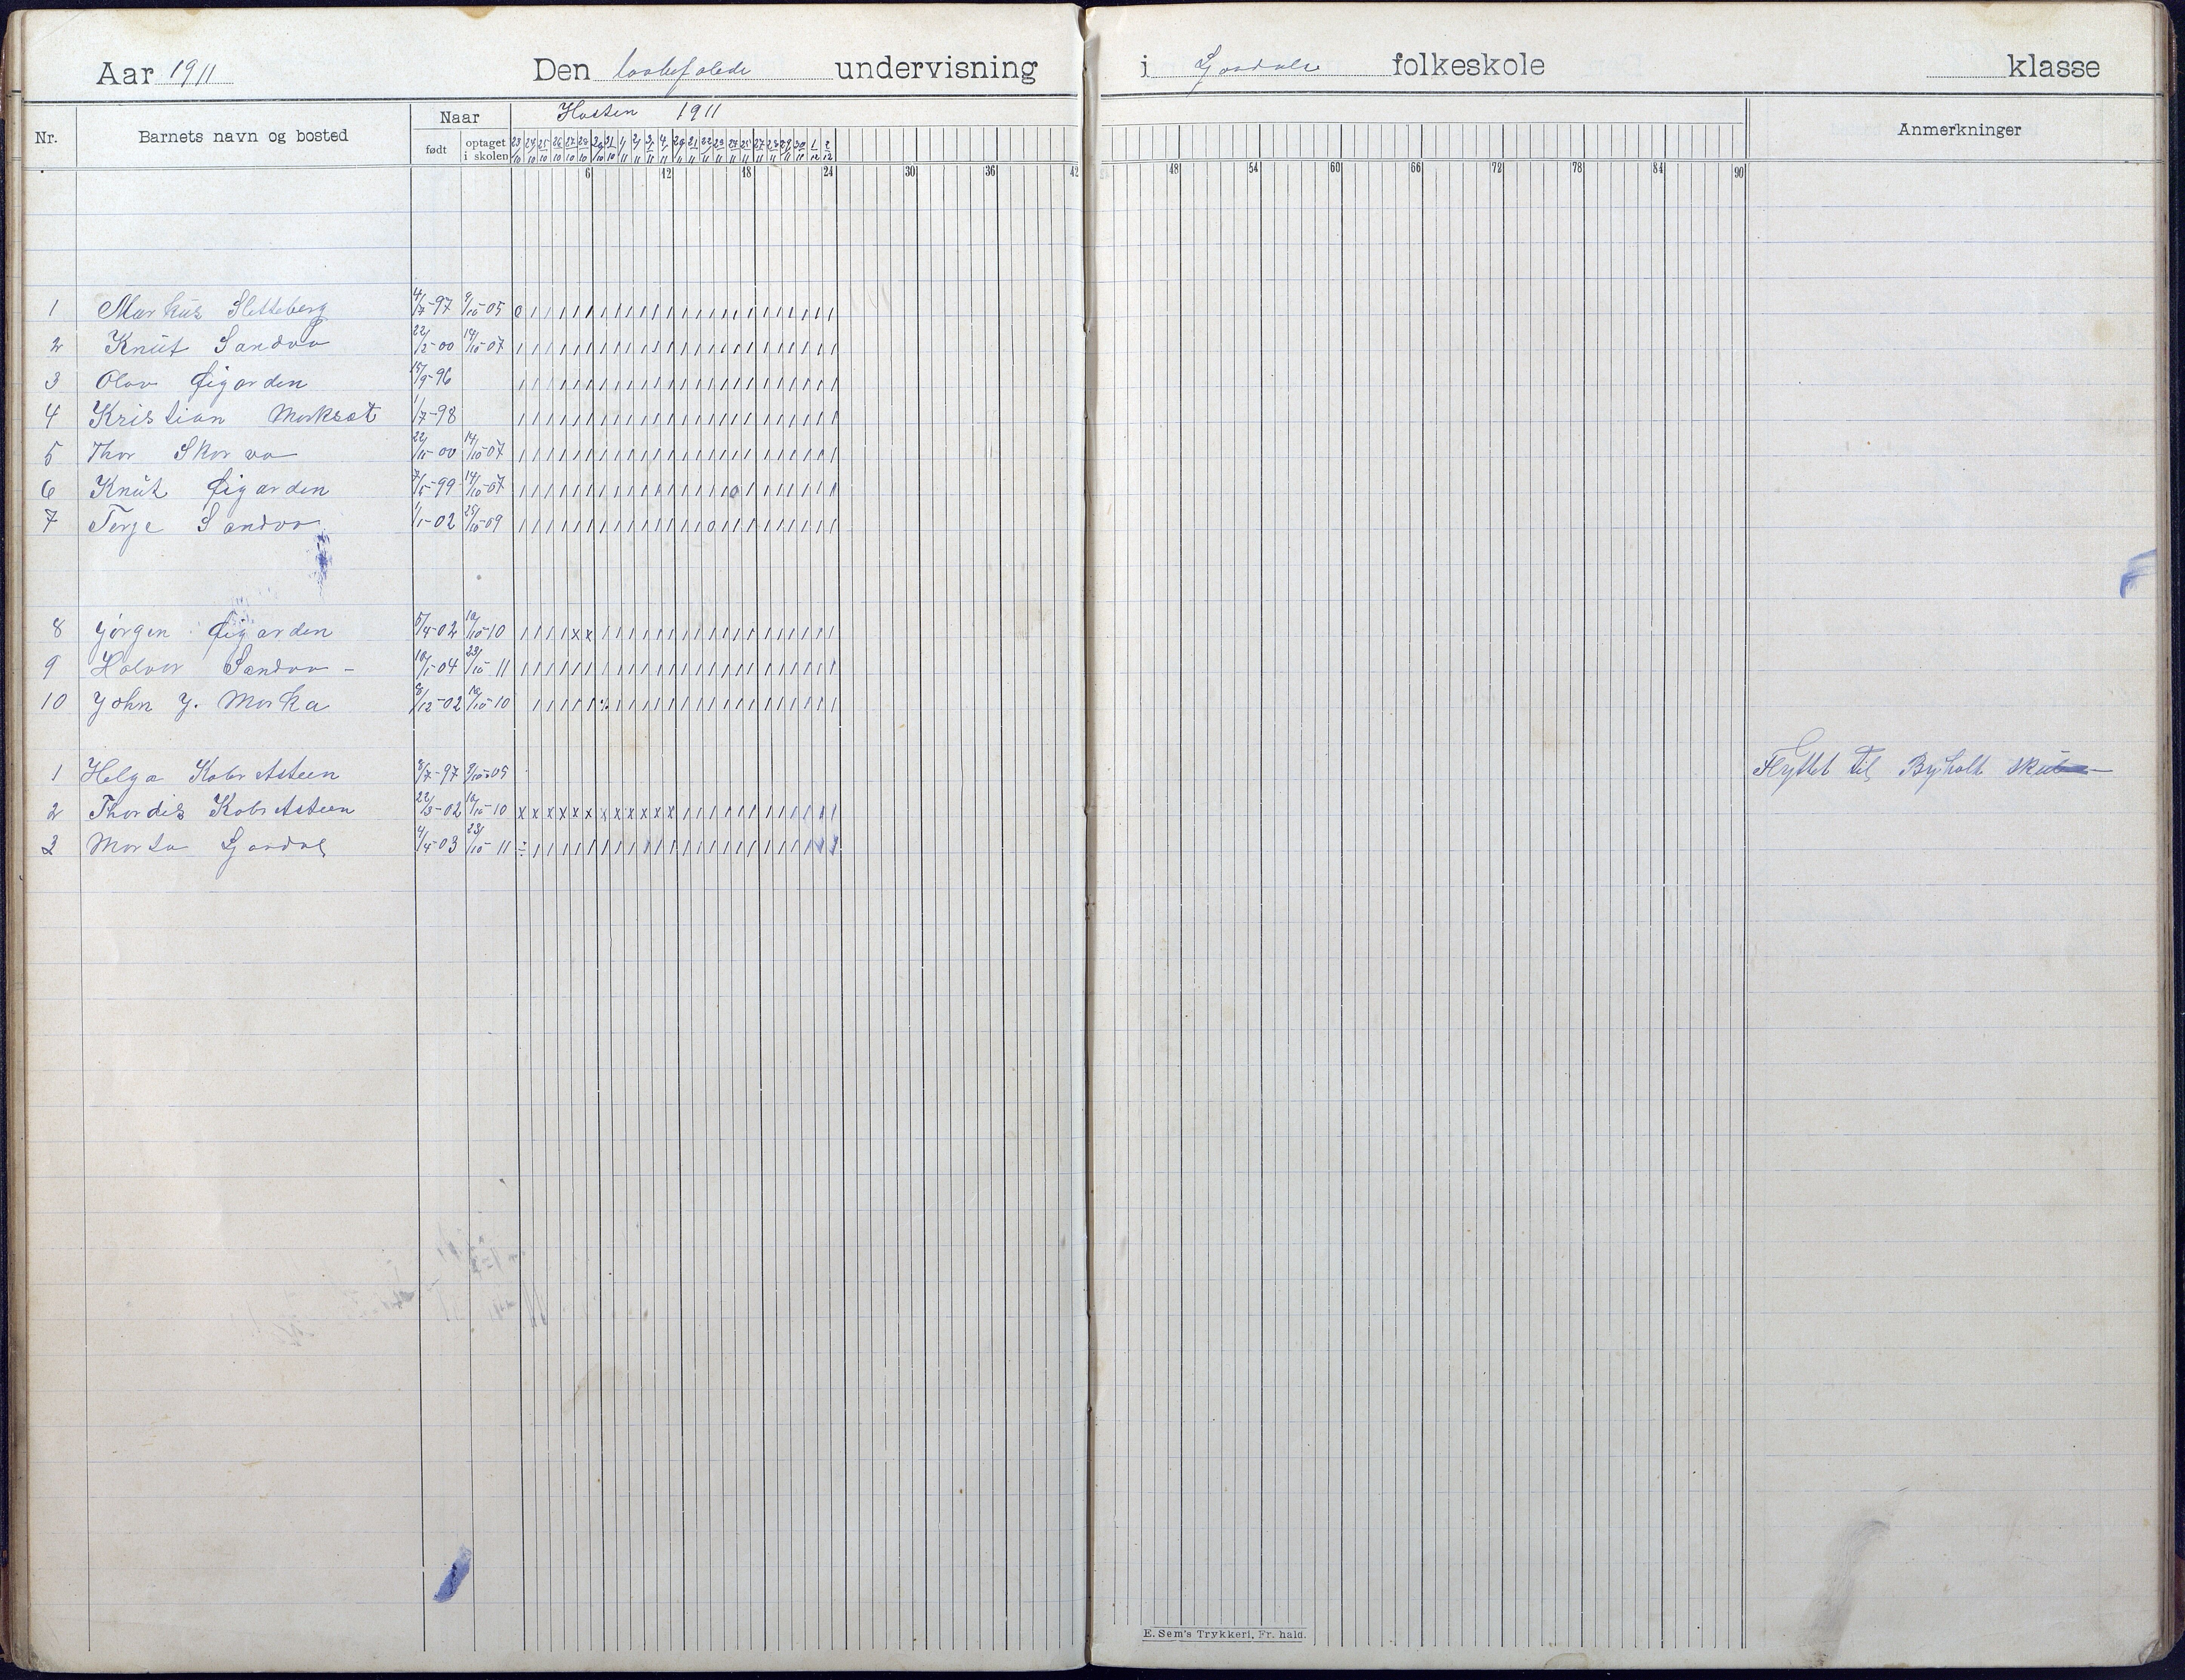 Aar 1911 Den lovbefalede undervisning i folkeskole klasse
Nr. Barnets navn og bosted Naar Høsten 1911 Anmerkninger
født optaget i skolen
6 12 18 24 30 36 42 48 54 60 66 72 78 84 90
1 Markus Sletteberg 4/7-97 9/10-05
2 Knut Sandvo 22/2-00 14/10-07
3 Olav Øigarden 15/9-96
4 Kristian 1/7-98
5 Thor Skorvo 22/10-00 14/10-07
6 Knut Øigarden 7/5-99 14/10-07
7 Terje Sandvo 1/1-02 25/10-09
8 Jörgen Øigarden 5/4-02 10/10-10
9 Halvor Sandvo 10/1-04 23/10-11
10 John J. Morka 8/12-02 10/10-10
1 Helga 8/7-97 9/10-05 Flyttet til
2 Thordis 22/3-02 10/10-10
3 4/4-03 23/10-11
E. Sem's Trykkeri, Fr. hald.